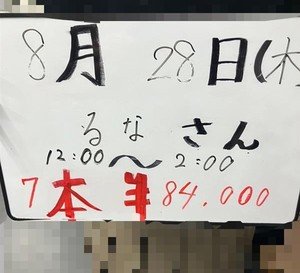 8月 28日(木
るなさん
12:00〜2:00
7本 ¥84.000